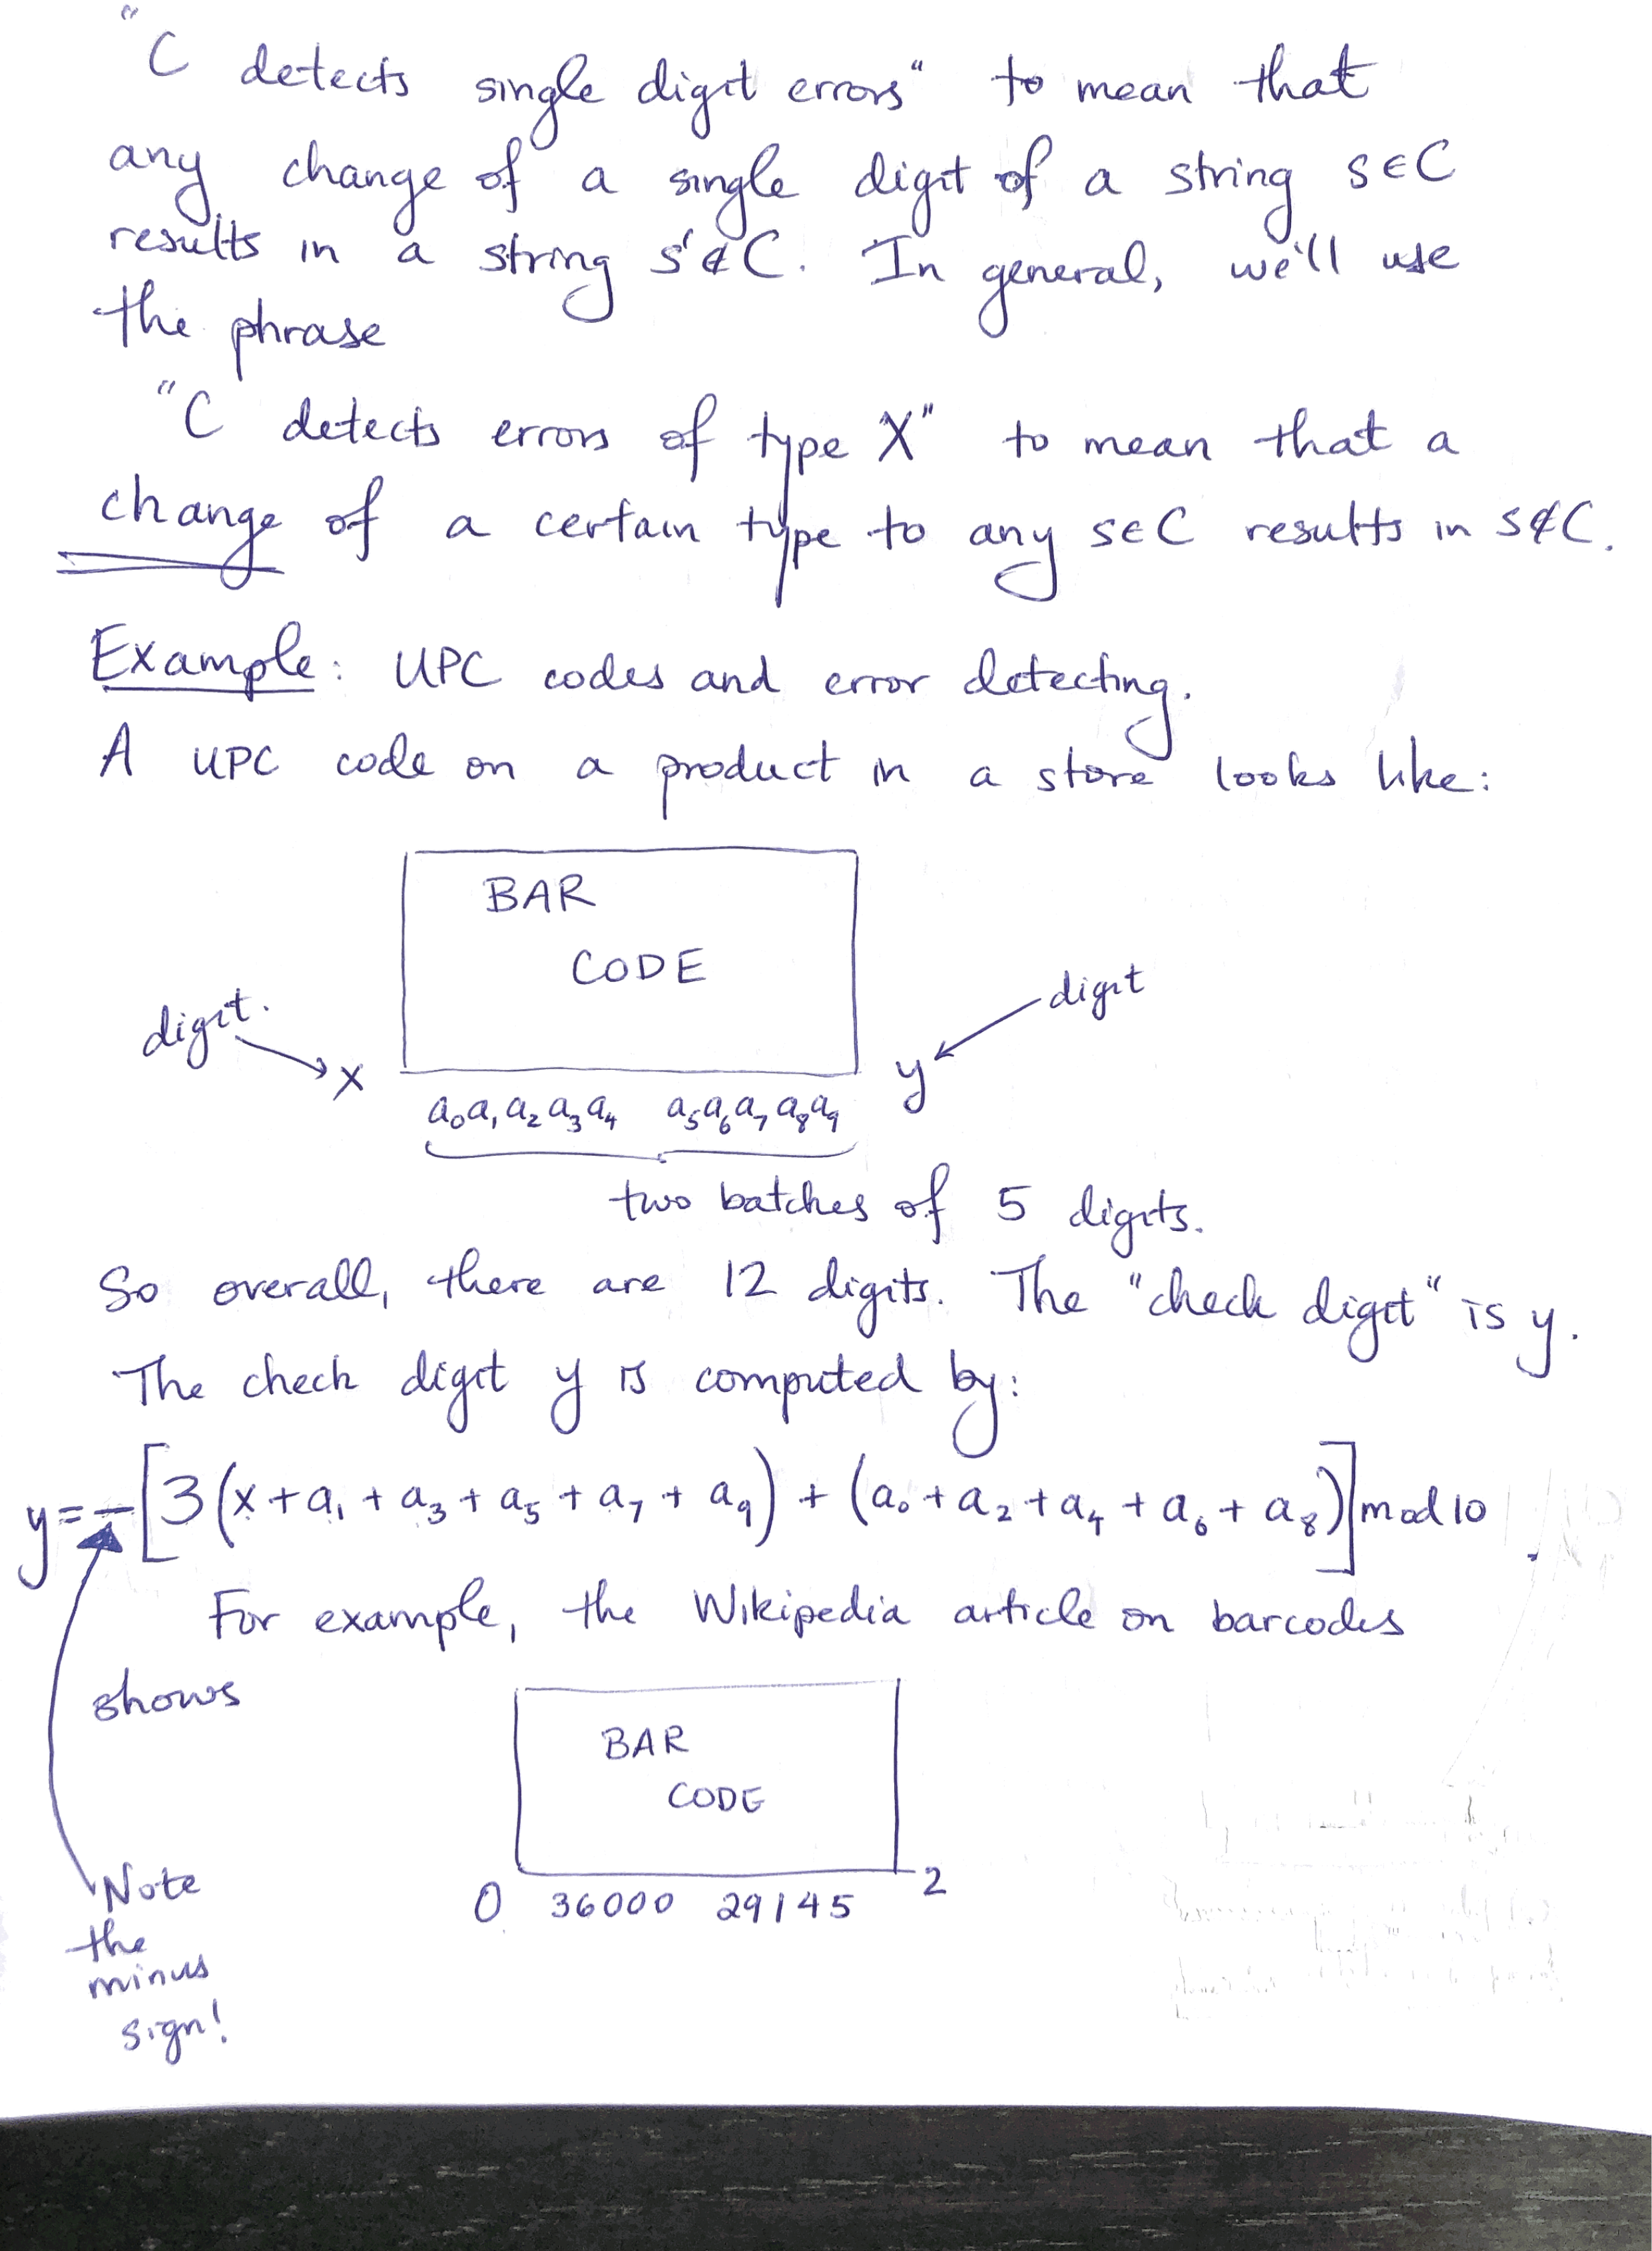 "C detects single digit errors" to mean that
any change of a single digit of a string s∈C
results in a string s'∉C. In general, we'll use
the phrase
"C detects errors of type X" to mean that a
change of a certain type to any s∈C results in s∉C.
Example: UPC codes and error detecting.
A UPC code on a product in a store looks like:
BAR
CODE
digit.
digit
x
y
a₀a₁a₂a₃a₄ a₅a₆a₇a₈a₉
two batches of 5 digits.
So overall, there are 12 digits. The "check digit" is y.
The check digit y is computed by:
y=-[3(x+a₁+a₃+a₅+a₇+a₉)+(a₀+a₂+a₄+a₆+a₈)]mod10.
For example, the Wikipedia article on barcodes
shows
BAR
CODE
0 36000 29145 2
Note
the
minus
sign!